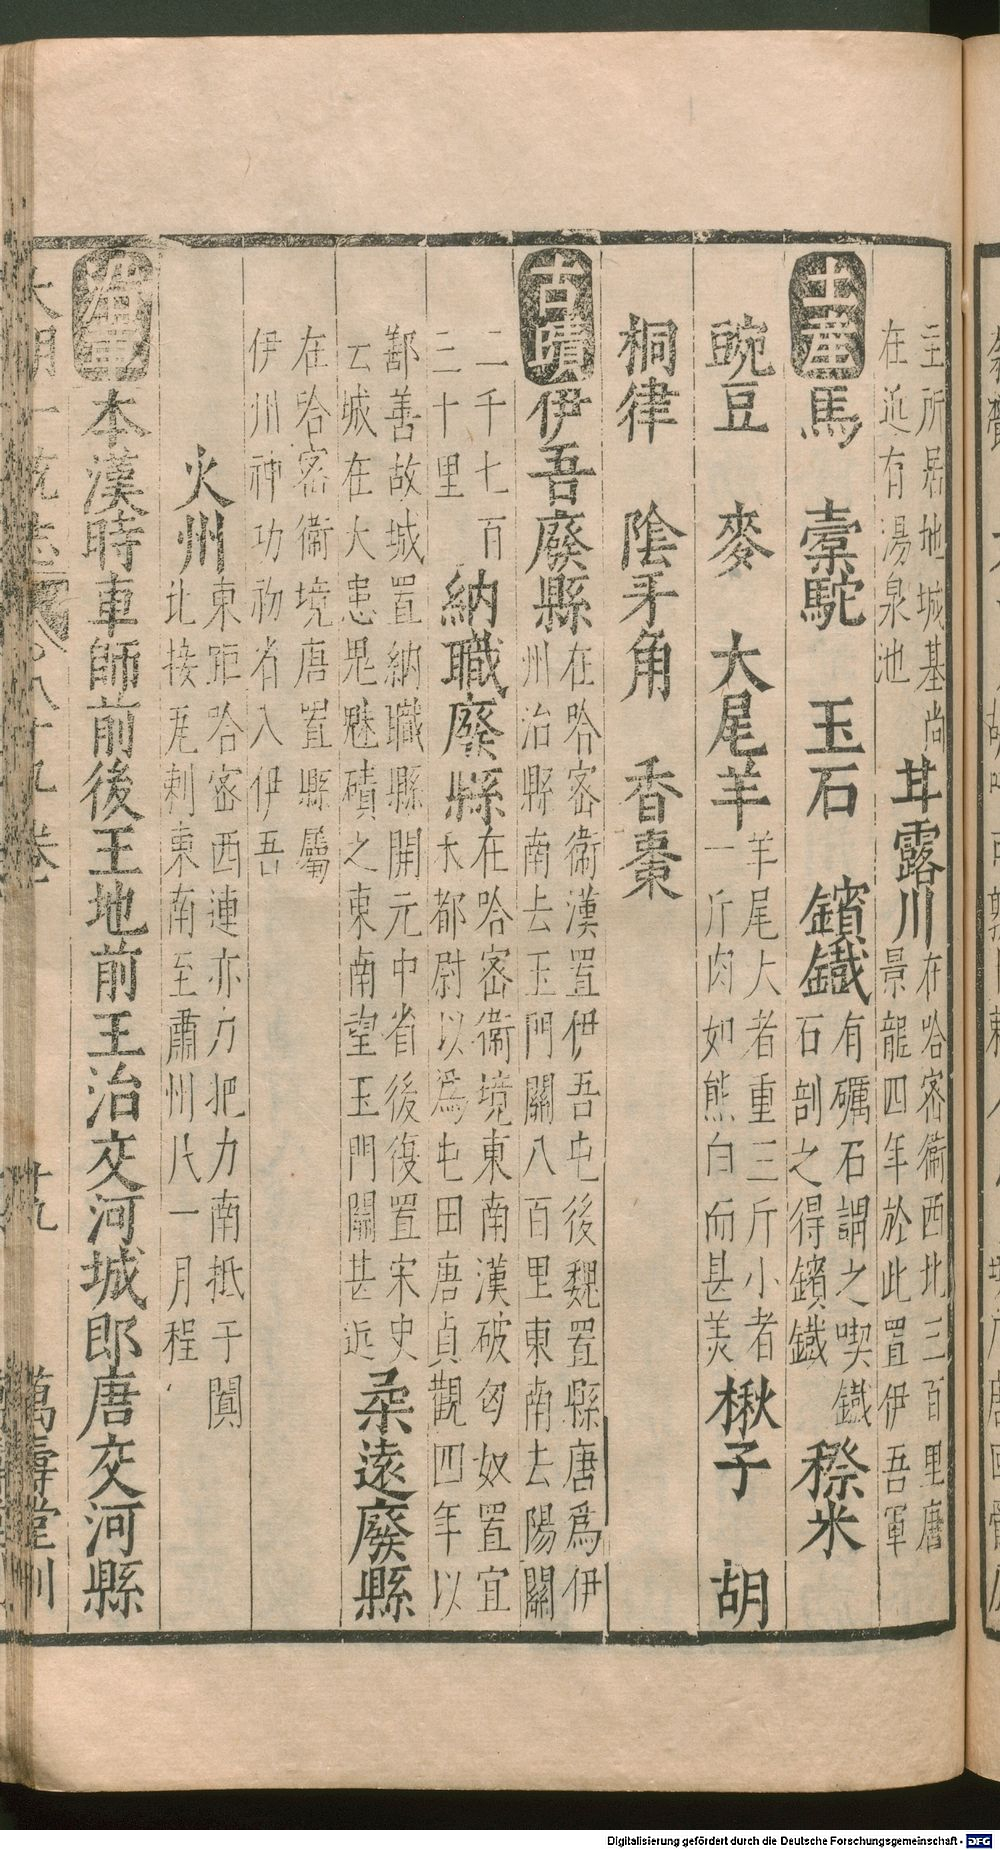 主所居地城基尚
在近有湯泉池
甘露川
在哈密衞西北三百里唐
景龍四年於此置伊吾軍
土產
馬　橐駝　玉石　鑌鐵
有礪石謂之喫鐵
石剖之得鑌鐵
穄米
豌豆　麥　大尾羊
羊尾大者重三斤小者
一斤肉如熊白而甚美
楸子　胡
桐律　陰牙角　香棗
古蹟
伊吾廢縣
在哈密衞漢置伊吾屯後魏置縣唐爲伊
州治縣南去玉門關八百里東南去陽關
二千七百
三十里
納職廢縣
在哈密衞境東南漢破匈奴置宜
禾都尉以爲屯田唐貞觀四年以
鄯善故城置納職縣開元中省後復置宋史
云城在大患鬼魅磧之東南望玉門關甚近
柔遠廢縣
在哈密衞境唐置縣屬
伊州神功初省入伊吾
火州
東距哈密西連亦力把力南抵于闐
北接瓦剌東南至肅州凡一月程
沿革
本漢時車師前後王地前王治交河城即唐交河縣
大明一統志 八十九卷 十九 萬壽堂刊
Digitalisierung gefördert durch die Deutsche Forschungsgemeinschaft - DFG